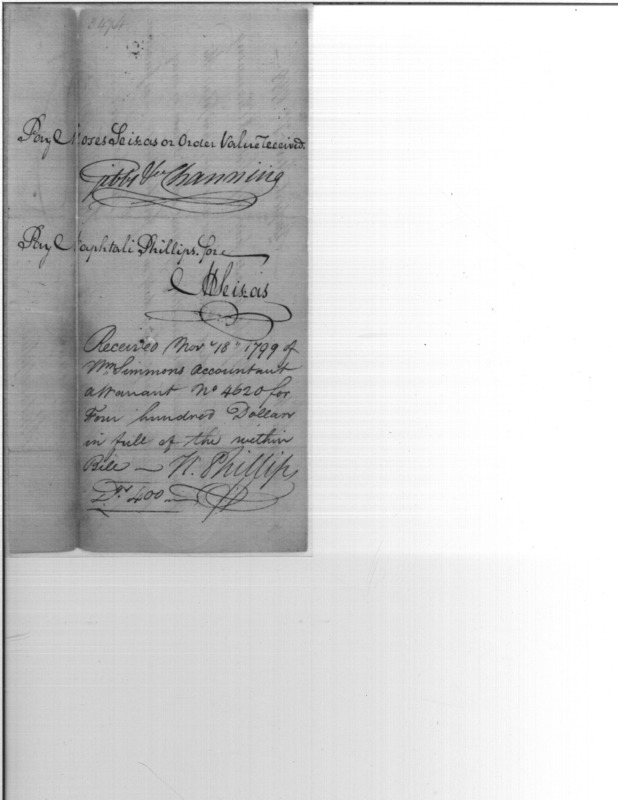 3474
Pay Moses Seixas or Order Value received.
Gibbs & Channing
Pay Naphtali Phillips. for
M Seixas
Received Novr 18th 1799 of
Wm Simmons Accountant
a Warrant No 4620 for
Four hundred Dollars
in full of the within
Bill — N. Phillips
Drs 400